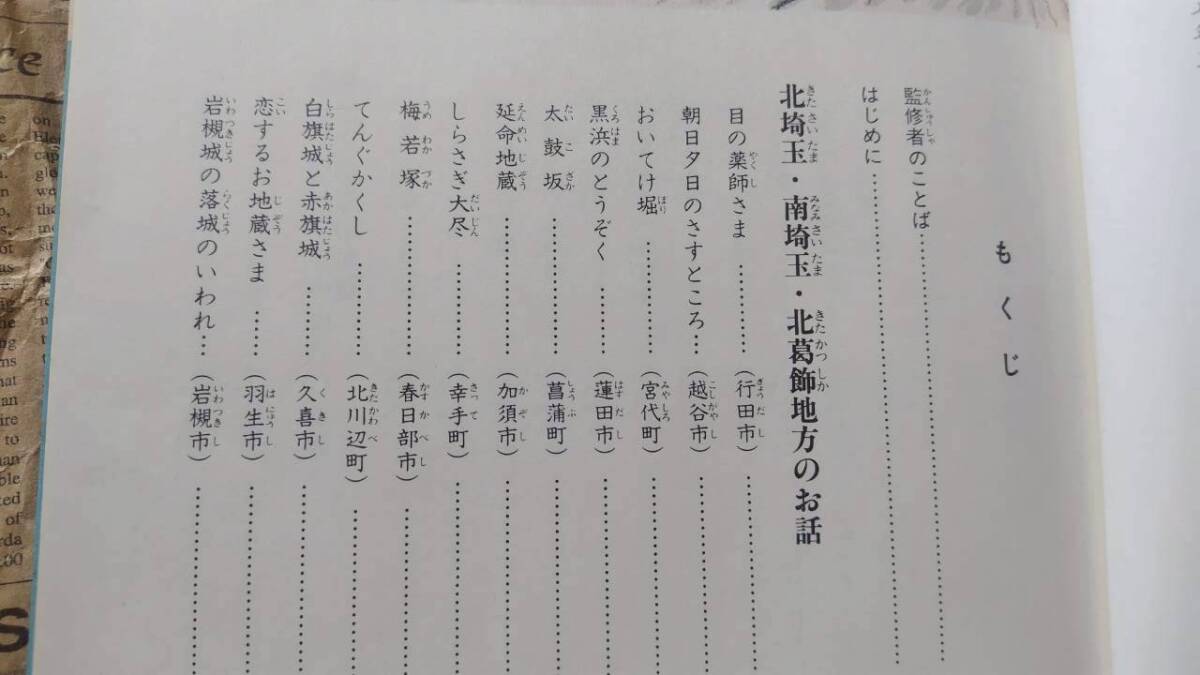 もくじ
監修者のことば
はじめに
北埼玉・南埼玉・北葛飾地方のお話
目の薬師さま……(行田市)
朝日夕日のさすところ…(越谷市)
おいてけ堀……(宮代町)
黒浜のとうぞく……(蓮田市)
太鼓坂……(菖蒲町)
延命地蔵……(加須市)
しらさぎ大尽……(幸手町)
梅若塚……(春日部市)
てんぐかくし……(北川辺町)
白旗城と赤旗城……(久喜市)
恋するお地蔵さま……(羽生市)
岩槻城の落城のいわれ…(岩槻市)